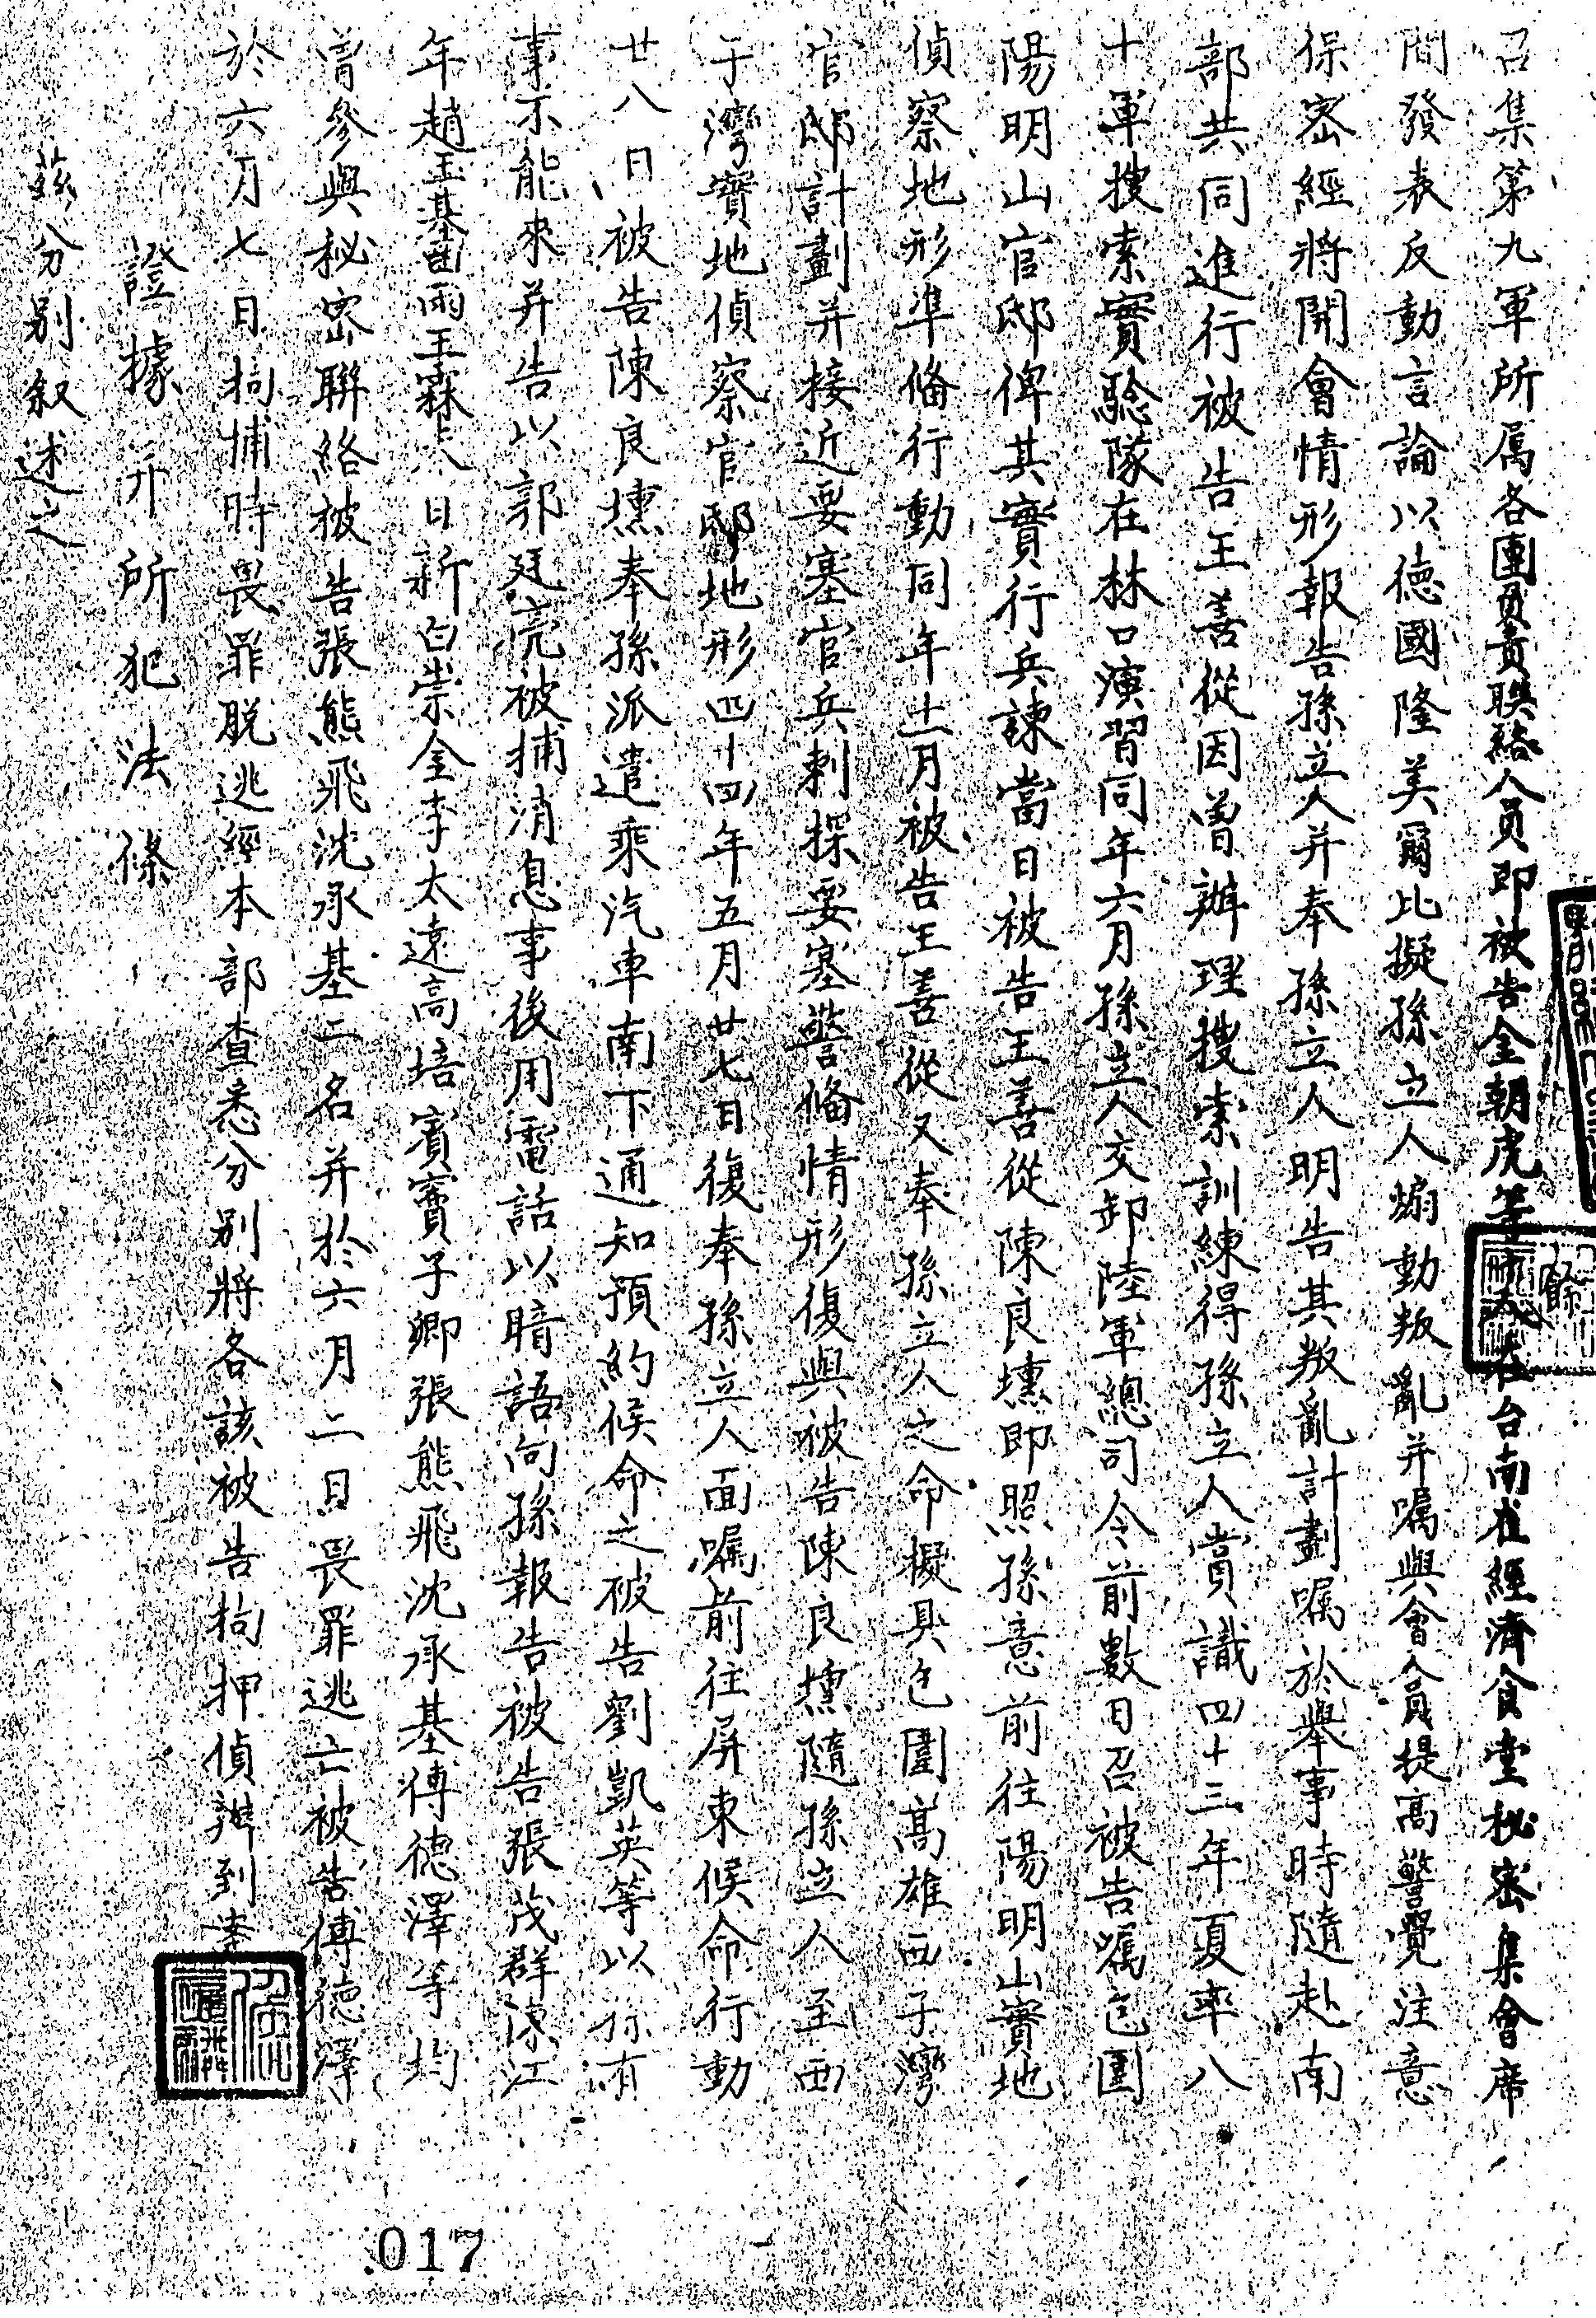 召集第九軍所屬各團負責聯絡人員即被告金朝虎等十人在台南崔經濟食堂秘密集會席
間發表反動言論以德國隆美爾比擬孫立人煽動叛亂并囑與會人員提高警覺注意
保密經將開會情形報告孫立人并奉孫立人明告其叛亂計劃囑於舉事時隨赴南
部共同進行被告王善從因曾辦理搜索訓練得孫立人賞識四十三年夏率八
十軍搜索實驗隊在林口演習同年六月孫立人交卸陸軍總司令前數日召被告囑包圍
陽明山官邸俾其實行兵諫當日被告王善從陳良壎即照孫意前往陽明山實地
偵察地形準備行動同年十一月被告王善從又奉孫立人之命擬具包圍高雄西子灣
官邸計劃并接近要塞官兵刺探要塞警備情形復與被告陳良壎隨孫立人至西
子灣實地偵察官邸地形四十四年五月廿七日復奉孫立人面囑前往屏東候命行動
廿八日被告陳良壎奉孫派遣乘汽車南下通知預約候命之被告劉凱英等以孫有
事不能來并告以郭廷亮被捕消息事後用電話以暗語向孫報告被告張茂群陳江
年趙玉基田雨王霖六日新白崇金李太遠高培賓竇子卿張熊飛沈承基傅德澤等均
曾參與秘密聯絡被告張熊飛沈承基二名并於六月二日畏罪逃亡被告傅德澤
於六月七日拘捕時畏罪脫逃經本部查悉分別將各該被告拘押偵辦到案
證據并所犯法條
茲分別叙述之
017